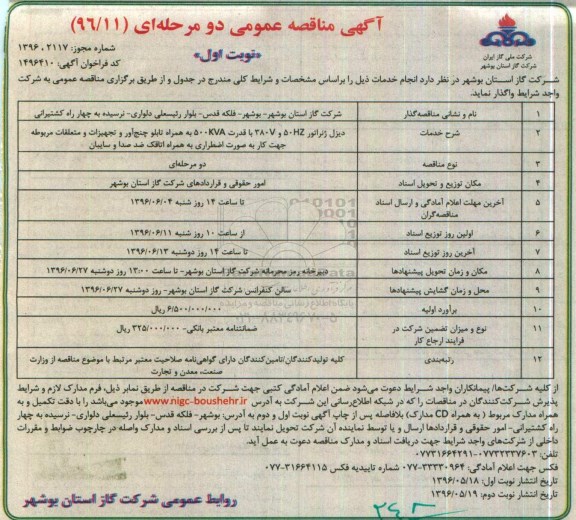 آگهی مناقصه عمومی دو مرحله‌ای (۹۶/۱۱)
«نوبت اول»
شماره مجوز: ۲۱۱۷ . ۱۳۹۶
کد فراخوان آگهی: ۱۴۹۶۴۱۰
شرکت ملی گاز ایران
شرکت گاز استان بوشهر
شرکت گاز استان بوشهر در نظر دارد انجام خدمات ذیل را براساس مشخصات و شرایط کلی مندرج در جدول و از طریق برگزاری مناقصه عمومی به شرکت
واجد شرایط واگذار نماید.
۱ نام و نشانی مناقصه‌گذار شرکت گاز استان بوشهر- بوشهر- فلکه قدس- بلوار رئیسعلی دلواری- نرسیده به چهار راه کشتیرانی
۲ شرح خدمات دیزل ژنراتور ۵۰HZ و ۳۸۰V با قدرت ۵۰۰KVA به همراه تابلو چنج‌آور و تجهیزات و متعلقات مربوطه
جهت کار به صورت اضطراری به همراه اتاقک ضد صدا و سایبان
۳ نوع مناقصه دو مرحله‌ای
۴ مکان توزیع و تحویل اسناد امور حقوقی و قراردادهای شرکت گاز استان بوشهر
۵ آخرین مهلت اعلام آمادگی و ارسال اسناد تا ساعت ۱۴ روز شنبه ۱۳۹۶/۰۶/۰۴
مناقصه‌گران
۶ اولین روز توزیع اسناد از ساعت ۱۰ روز شنبه ۱۳۹۶/۰۶/۱۱
۷ آخرین روز توزیع اسناد تا ساعت ۱۴ روز دوشنبه ۱۳۹۶/۰۶/۱۳
۸ مکان و زمان تحویل پیشنهادها دبیرخانه رمز محرمانه شرکت گاز استان بوشهر- تا ساعت ۱۳:۰۰ روز دوشنبه ۱۳۹۶/۰۶/۲۷
۹ محل و زمان گشایش پیشنهادها سالن کنفرانس شرکت گاز استان بوشهر- روز دوشنبه ۱۳۹۶/۰۶/۲۷
۱۰ برآورد اولیه ۶/۵۰۰/۰۰۰/۰۰۰ ریال
۱۱ نوع و میزان تضمین شرکت در ضمانتنامه معتبر بانکی- ۳۲۵/۰۰۰/۰۰۰ ریال
فرایند ارجاع کار
۱۲ رتبه‌بندی کلیه تولیدکنندگان/تامین‌کنندگان دارای گواهی‌نامه صلاحیت معتبر مرتبط با موضوع مناقصه از وزارت
صنعت، معدن و تجارت
از کلیه شرکت‌ها/ پیمانکاران واجد شرایط دعوت می‌شود ضمن اعلام آمادگی کتبی جهت شرکت در مناقصه از طریق نمابر ذیل، فرم مدارک لازم و شرایط
پذیرش شرکت‌کنندگان در مناقصات را که در شبکه اطلاع‌رسانی این شرکت به آدرس www.nigc-boushehr.ir موجود می‌باشد را با دقت تکمیل و به
همراه مدارک مربوط (به همراه CD مدارک) بلافاصله پس از چاپ آگهی نوبت اول و دوم به آدرس: بوشهر- فلکه قدس- بلوار رئیسعلی دلواری- نرسیده به چهار
راه کشتیرانی- امور حقوقی و قراردادها ارسال و یا توسط نماینده آن شرکت تحویل نمایند تا پس از بررسی اسناد و مدارک واصله در چارچوب ضوابط و مقررات
داخلی از شرکت‌های واجد شرایط جهت دریافت اسناد و مدارک مناقصه دعوت به عمل آید.
تلفن: ۰۷۷۳۲۳۳۷۶۰۳-۰۷۷۳۱۶۶۴۲۹۱
فکس جهت اعلام آمادگی: ۳۳۳۳۰۹۶۴-۰۷۷ شماره تاییدیه فکس ۳۱۶۶۴۱۱۵-۰۷۷
تاریخ انتشار نوبت اول: ۱۳۹۶/۰۵/۱۸
تاریخ انتشار نوبت دوم: ۱۳۹۶/۰۵/۱۹
روابط عمومی شرکت گاز استان بوشهر